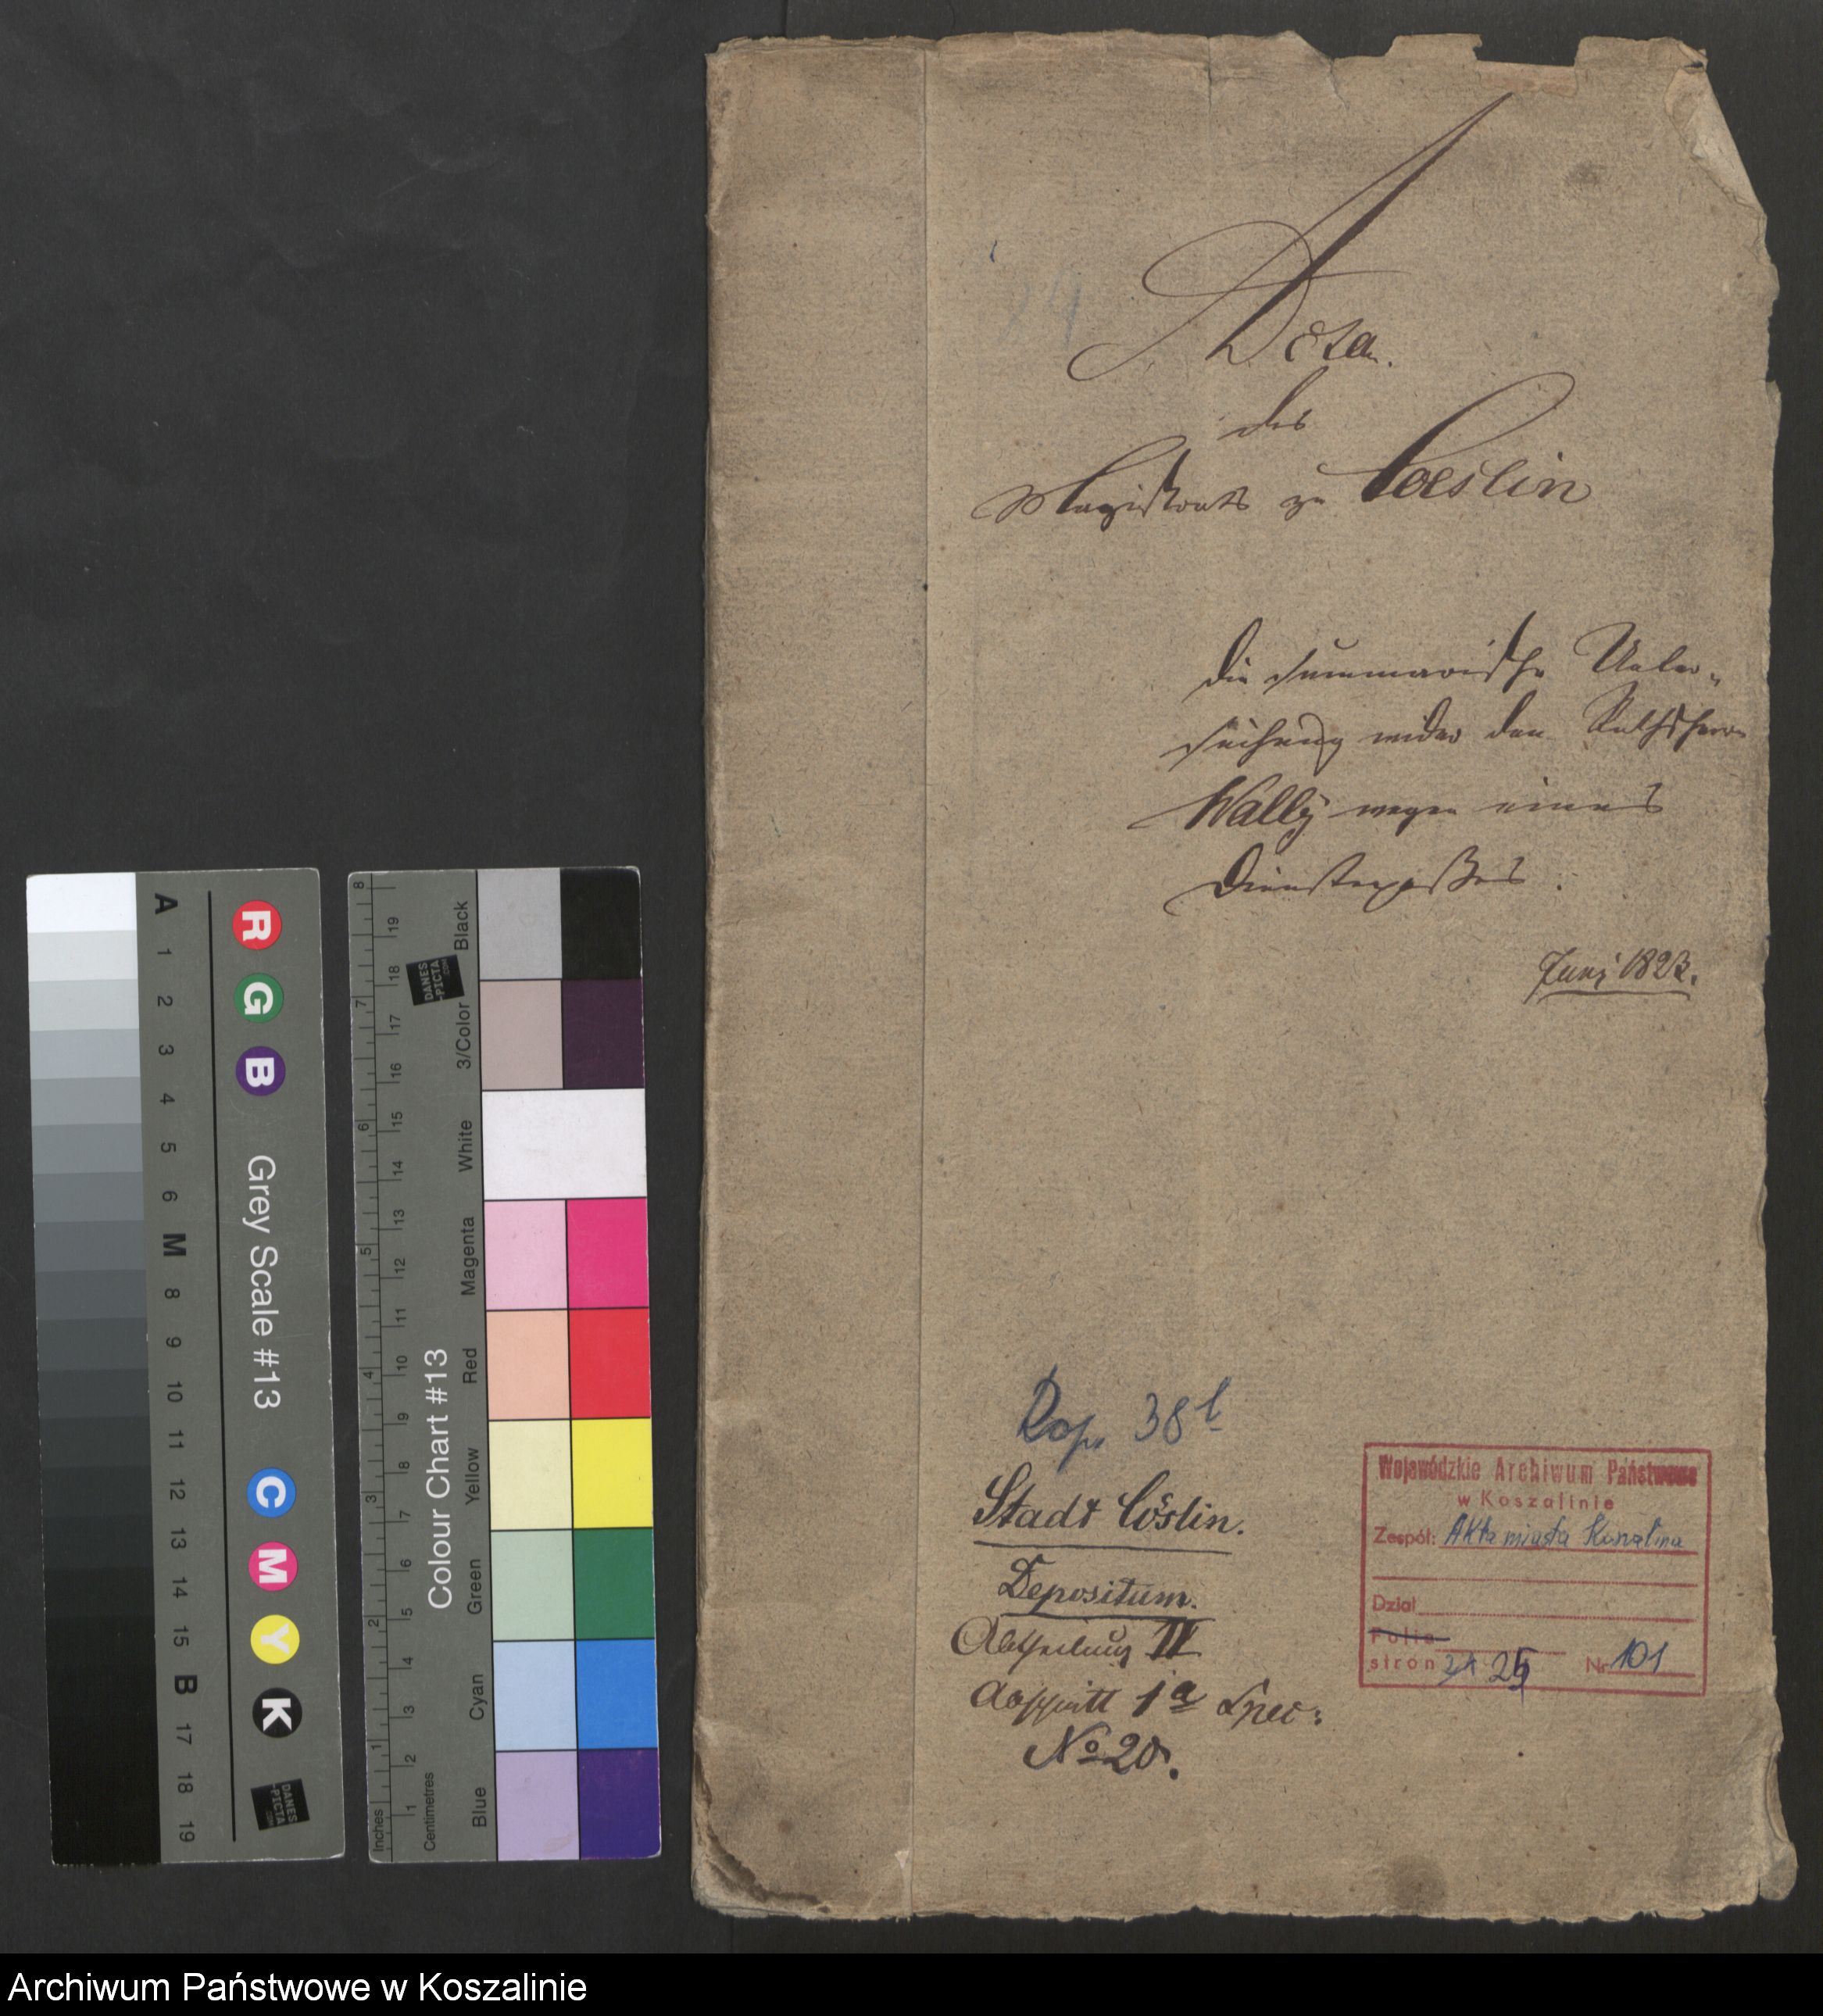 Acta
des
Magistrats zu Coeslin
die summarische Unter-
suchung wider den Rathsherrn
Wally wegen eines
Dienst
Juni 1823.
Rep. 38 b
Stadt Cöslin.
Depositum.
Abtheilung II
Abschnitt 1a Spec:
No 20.
Wojewódzkie Archiwum Państwowe
w Koszalinie
Zespół: Akta miasta Koszalina
Dział
Folio
stron 24 25 Nr 101
A 1 2 3 4 5 6 M 8 9 10 11 12 13 14 15 B 17 18 19
R G B Grey Scale #13 C M Y K
DANES
-PICTA
.COM
Inches 1 2 3 4 5 6 7 8
Centimetres 1 2 3 4 5 6 7 8 9 10 11 12 13 14 15 16 17 18 19
Colour Chart #13
DANES
-PICTA
.COM
Blue Cyan Green Yellow Red Magenta White 3/Color Black
Archiwum Państwowe w Koszalinie